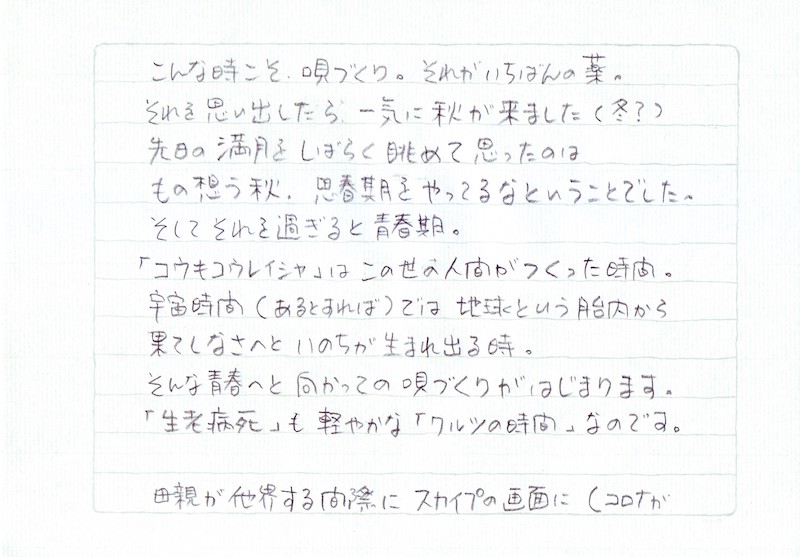 こんな時こそ、唄づくり。それがいちばんの薬。
それを思い出したら、一気に秋が来ました(冬?)
先日の満月をしばらく眺めて思ったのは
もの想う秋、思春期をやってるなということでした。
そしてそれを過ぎると青春期。
「コウキコウレイシャ」はこの世の人間がつくった時間。
宇宙時間(あるとすれば)では地球という胎内から
果てしなさへといのちが生まれ出る時。
そんな青春へと向かっての唄づくりがはじまります。
「生老病死」も軽やかな「ワルツの時間」なのです。
母親が他界する間際にスカイプの画面に(コロナが